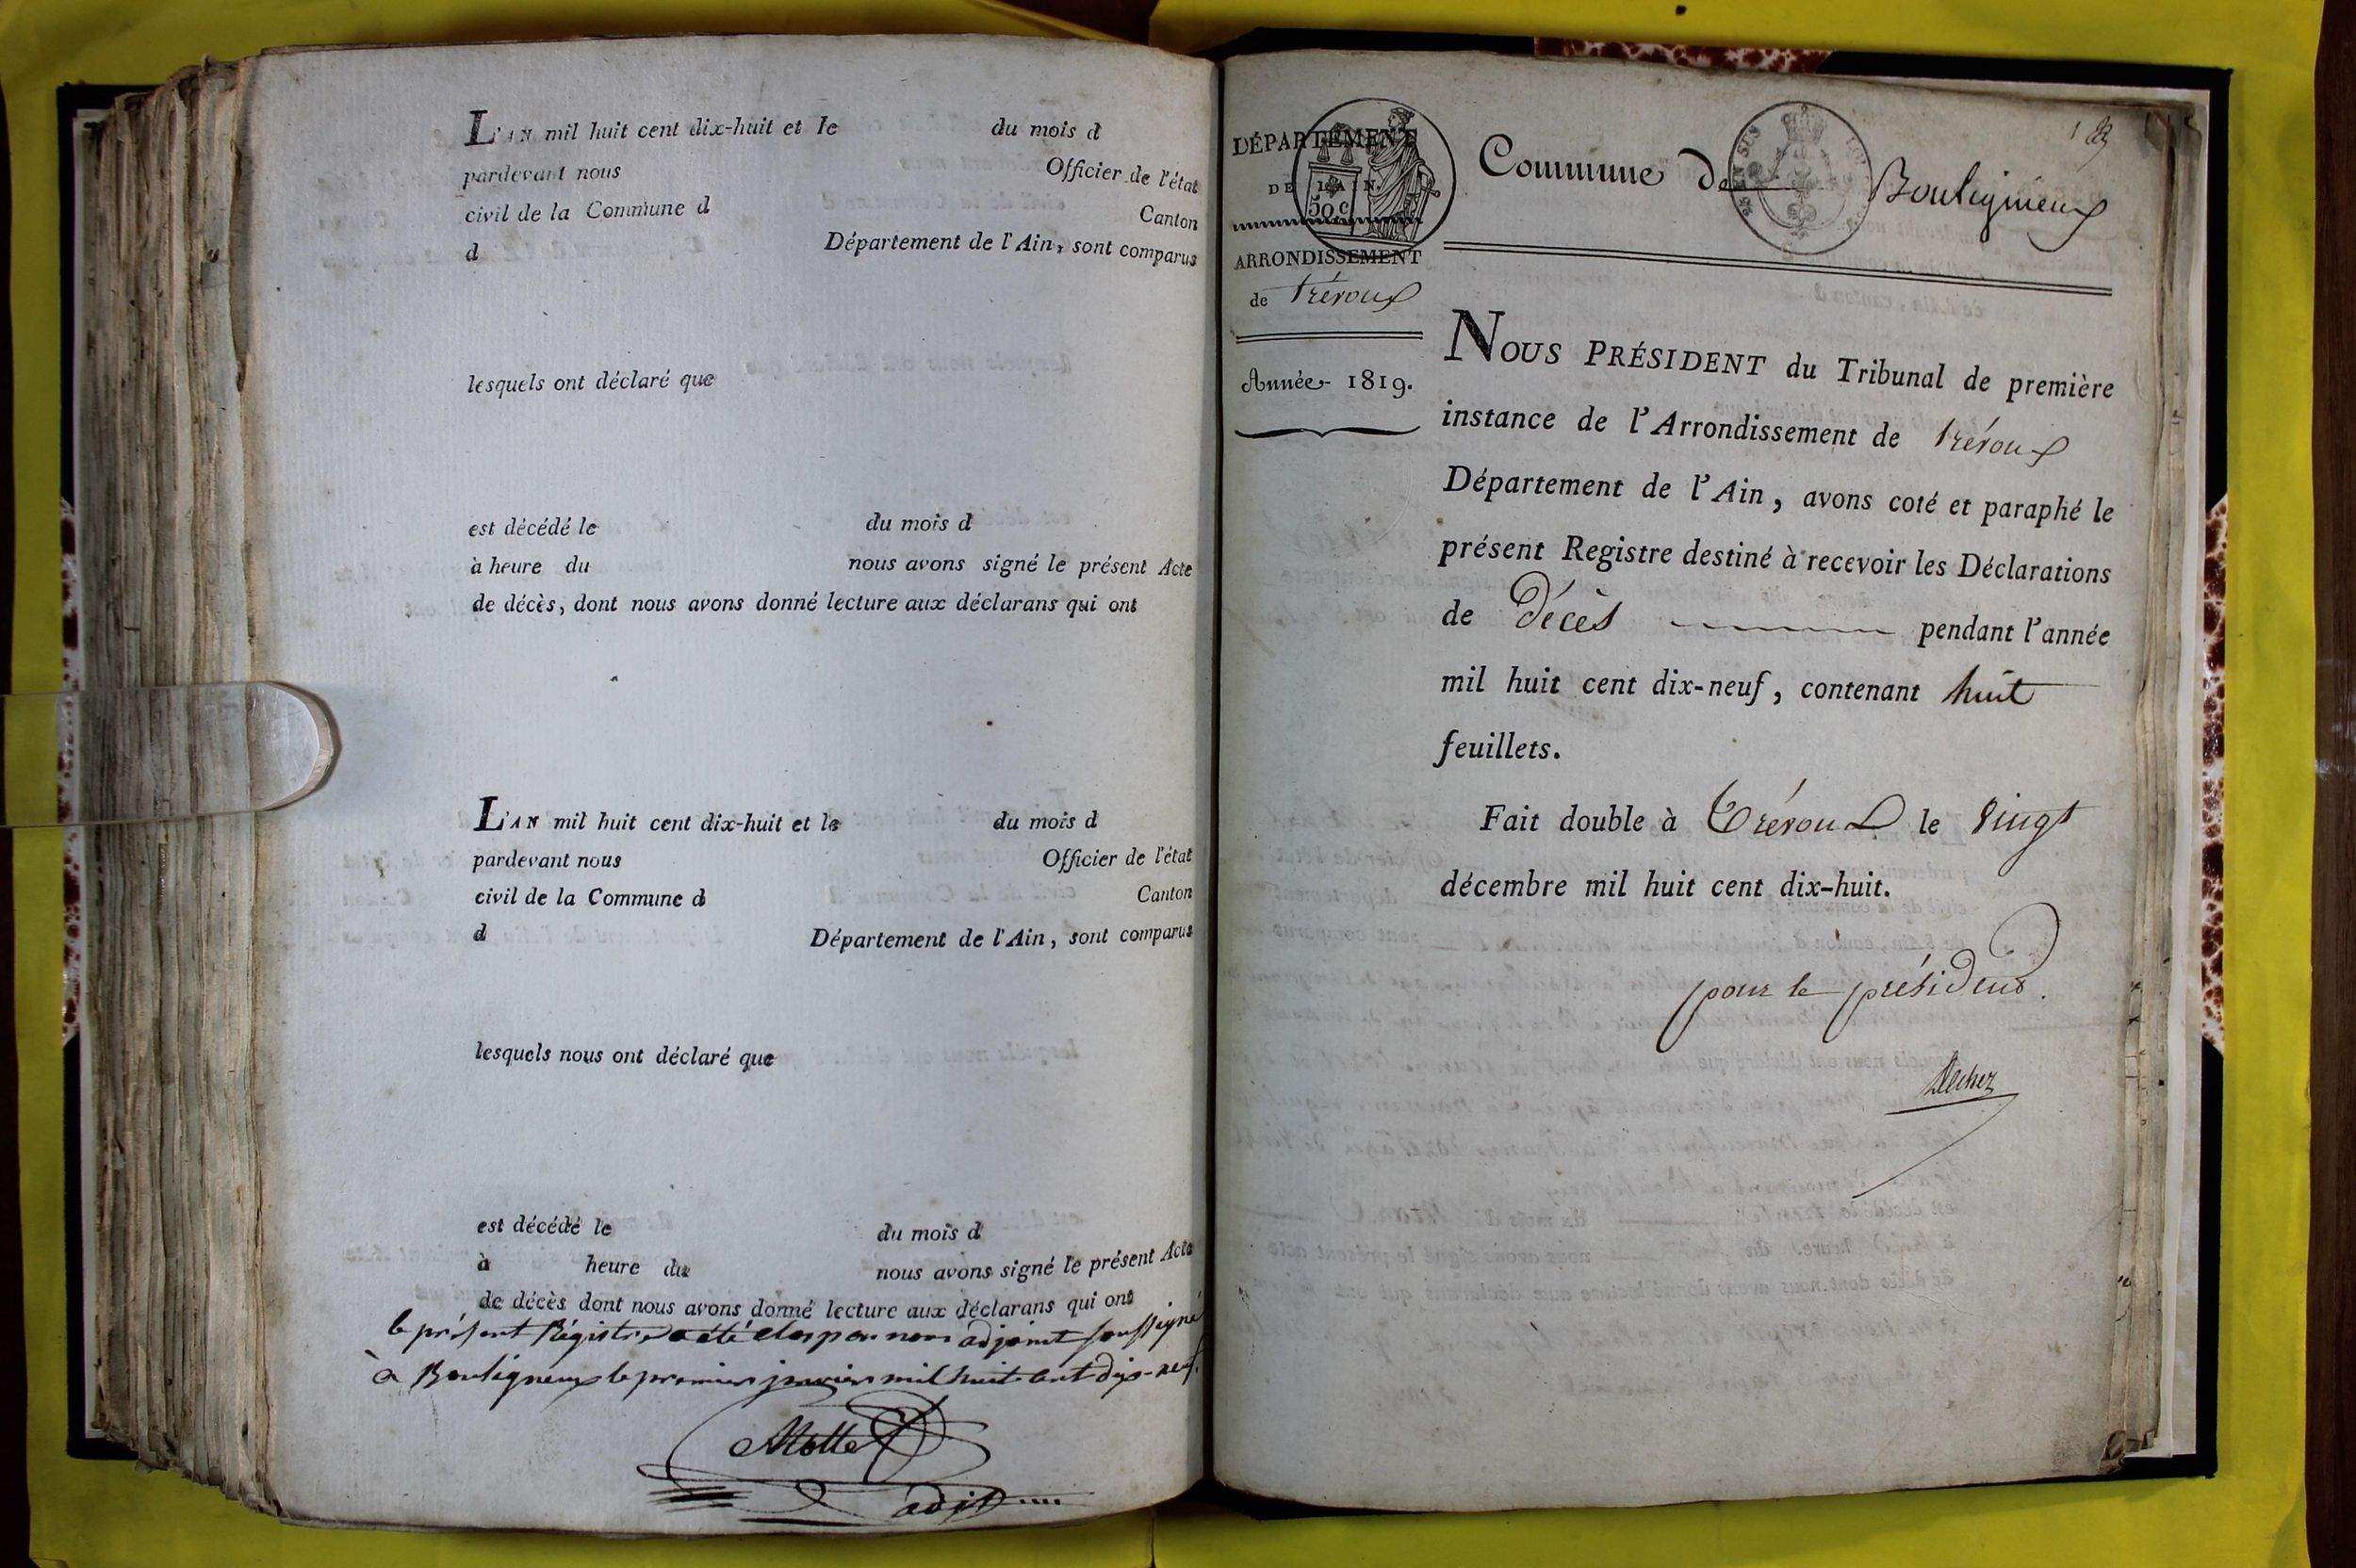 L'AN mil huit cent dix-huit et le du mois d
pardevant nous Officier de l'état
civil de la Commune d Canton
d Département de l'Ain, sont comparus
lesquels ont déclaré que
est décédé le du mois d
à heure du nous avons signé le présent Acte
de décès, dont nous avons donné lecture aux déclarans qui ont
L'AN mil huit cent dix-huit et le du mois d
pardevant nous Officier de l'état
civil de la Commune d Canton
d Département de l'Ain, sont comparus
lesquels nous ont déclaré que
est décédé le du mois d
à heure du nous avons signé le présent Acte
de décès dont nous avons donné lecture aux déclarans qui ont
le présent Régistre a été clos par nous adjoint soussigné
à Bouligneux le premier janvier mil huit cent dix-neuf.
Mottet
adjt
DÉPARTEMENT
DE L'AIN.
50 c
ARRONDISSEMENT
de Trévoux
Année 1819.
Commune de Bouligneux
1
NOUS PRÉSIDENT du Tribunal de première
instance de l'Arrondissement de Trévoux
Département de l'Ain, avons coté et paraphé le
présent Registre destiné à recevoir les Déclarations
de Décès pendant l'année
mil huit cent dix-neuf, contenant huit
feuillets.
Fait double à Trévoux le vingt
décembre mil huit cent dix-huit.
pour le président